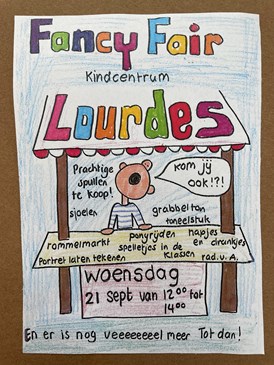 Fancy Fair
Kindcentrum
Lourdes
Prachtige
spullen
te koop!
kom jij
ook!?!
sjoelen
grabbelton
toneelstuk
rommelmarkt ponyrijden hapjes
spelletjes in de en drankjes
Portret laten tekenen klassen rad.v.A.
woensdag
21 sept van 12⁰⁰ tot
14⁰⁰
En er is nog veeeeeeeel meer Tot dan!